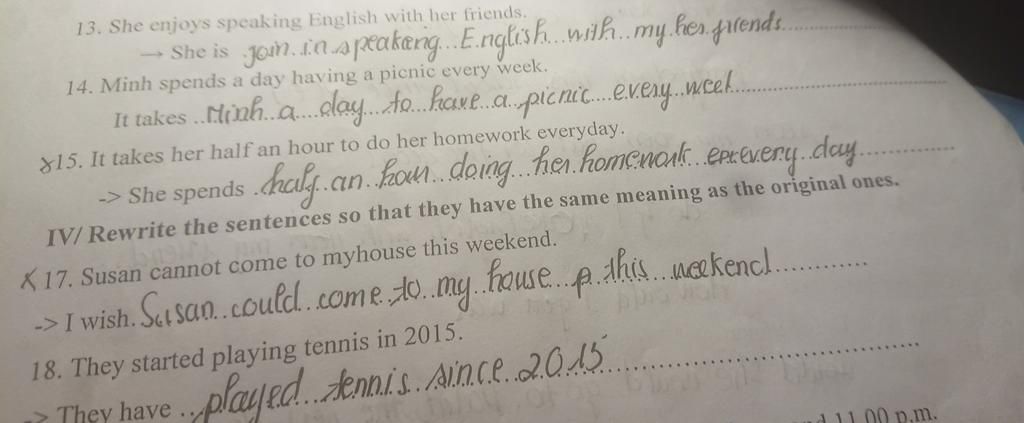 13. She enjoys speaking English with her friends.
→ She is join in speaking English with my her friends
14. Minh spends a day having a picnic every week.
It takes Minh a day to have a picnic every week
15. It takes her half an hour to do her homework everyday.
-> She spends half an hour doing her homework every day
IV/ Rewrite the sentences so that they have the same meaning as the original ones.
17. Susan cannot come to myhouse this weekend.
-> I wish Susan could come to my house this weekend
18. They started playing tennis in 2015.
-> They have played tennis since 2015
11.00 p.m.